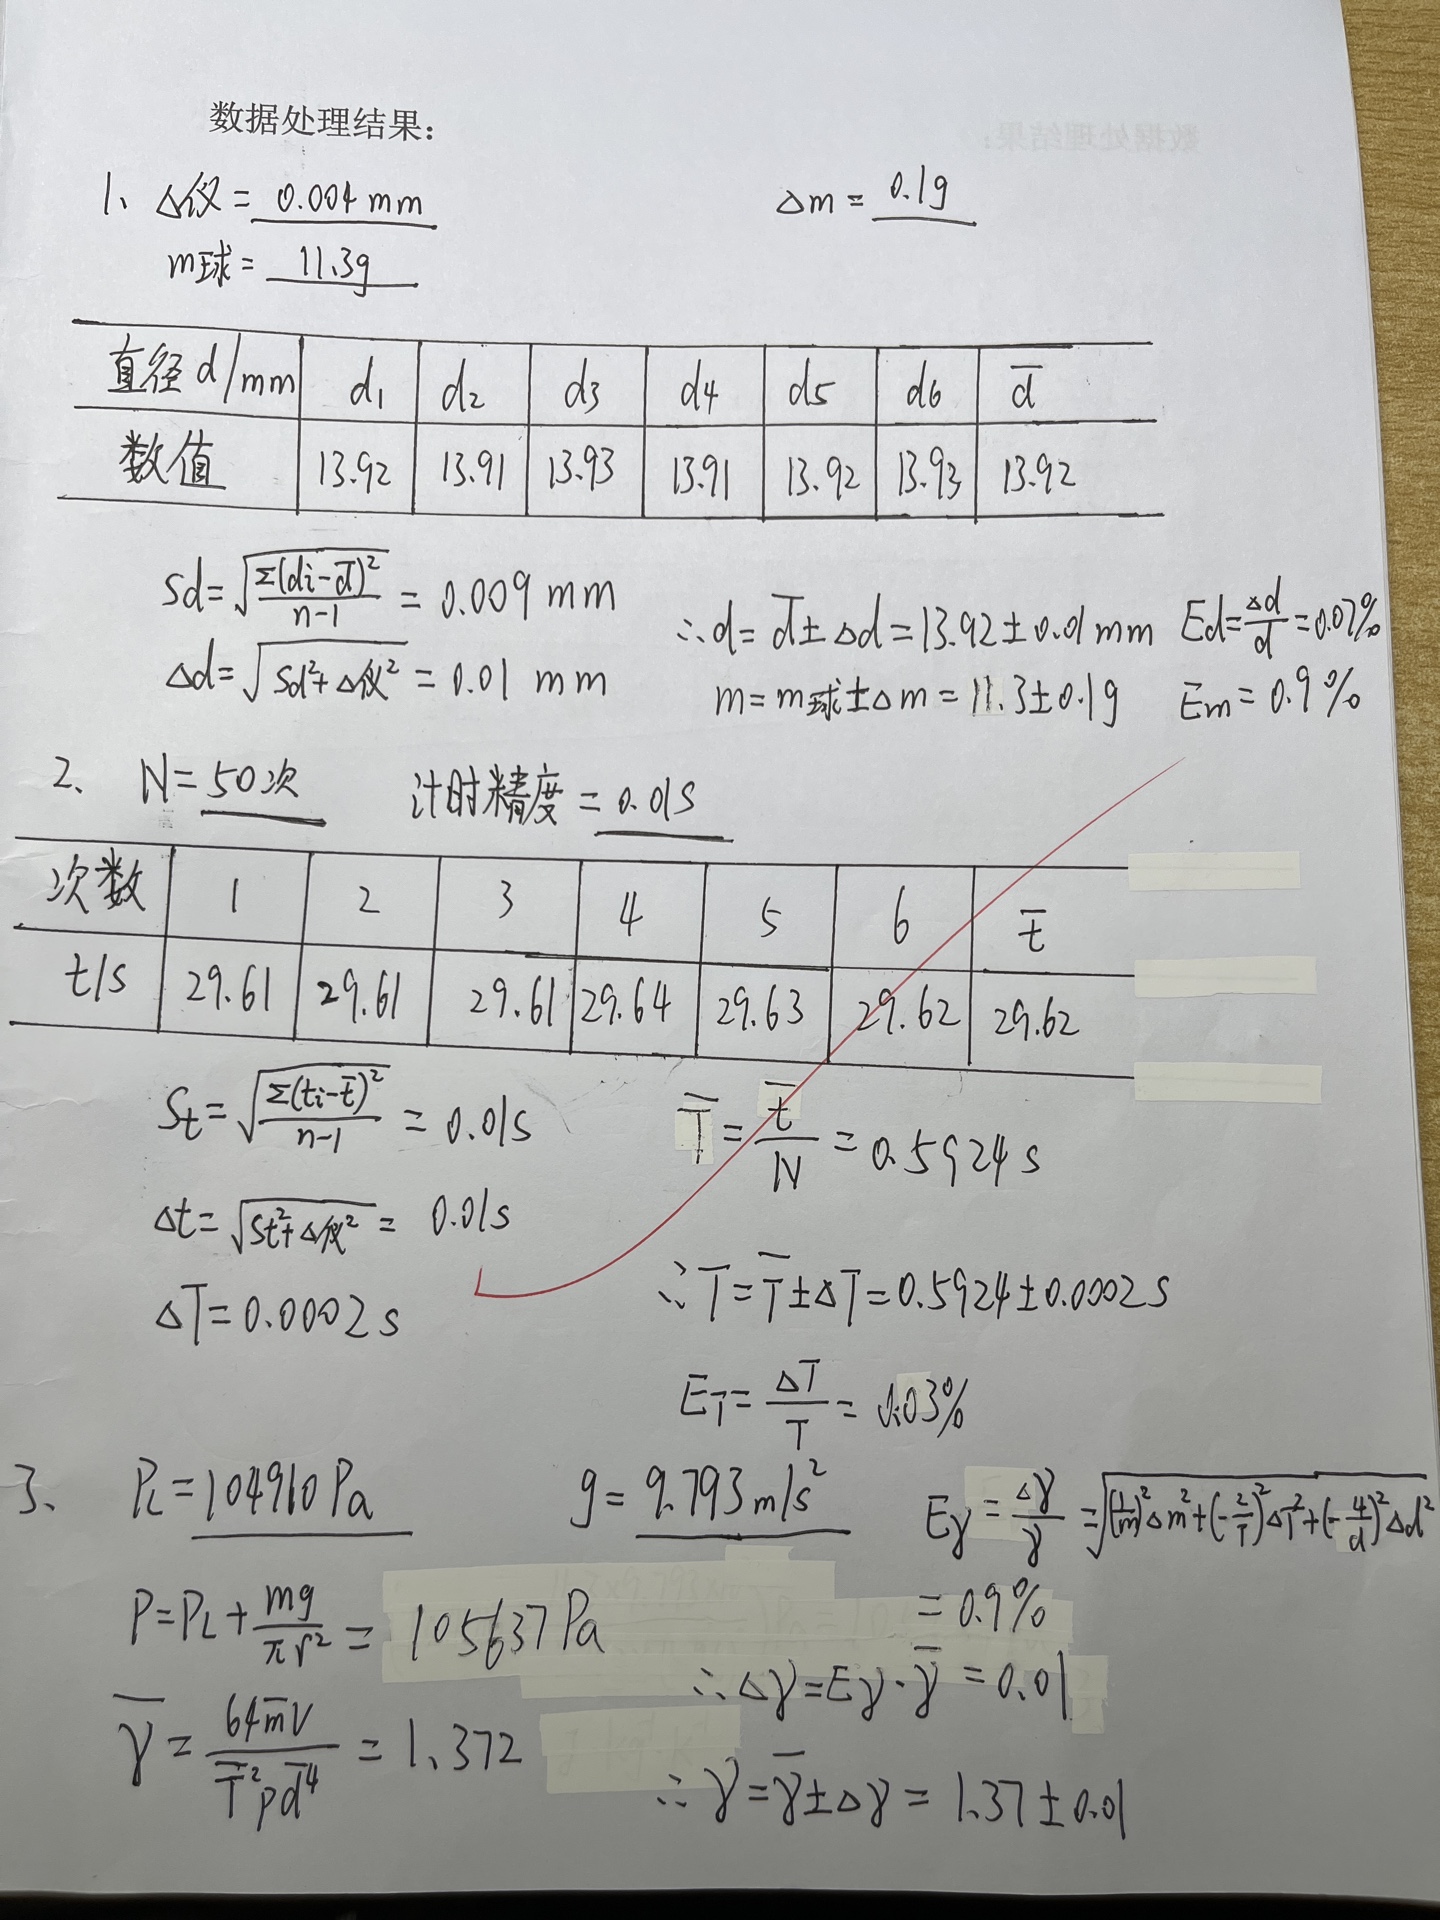 数据处理结果：
1、 Δ仪 = 0.004 mm Δm = 0.1g
m球 = 11.3g
直径 d/mm d₁ d₂ d₃ d₄ d₅ d₆ d̄
数值 13.92 13.91 13.93 13.91 13.92 13.93 13.92
Sd = √(Σ(di-d̄)²/(n-1)) = 0.009 mm ∴ d = d̄ ± Δd = 13.92 ± 0.01 mm Ed = Δd/d = 0.07%
Δd = √(Sd² + Δ仪²) = 0.01 mm m = m球 ± Δm = 11.3 ± 0.1g Em = 0.9%
2、 N = 50次 计时精度 = 0.01s
次数 1 2 3 4 5 6 t̄
t/s 29.61 29.61 29.61 29.64 29.63 29.62 29.62
St = √(Σ(ti-t̄)²/(n-1)) = 0.01s T̄ = t̄/N = 0.5924 s
Δt = √(St² + Δ仪²) = 0.01s
ΔT = 0.0002 s ∴ T = T̄ ± ΔT = 0.5924 ± 0.0002 s
ET = ΔT/T = 0.03%
3、 PL = 104910 Pa g = 9.793 m/s² Eγ = Δγ/γ = √((1/m)²Δm² + (-2/T)²ΔT² + (-4/d)²Δd²)
P = PL + mg/πr² = 105637 Pa = 0.9%
∴ Δγ = Eγ · γ̄ = 0.01
γ̄ = 64m̄V/T̄²pd̄⁴ = 1.372
∴ γ = γ̄ ± Δγ = 1.37 ± 0.01